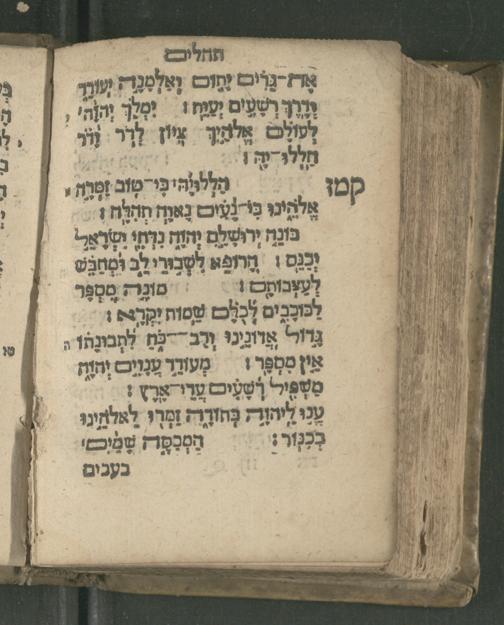 תהלים
אֶת־גֵּרִים יָתוֹם וְאַלְמָנָה יְעוֹדֵד
וְדֶרֶךְ רְשָׁעִים יְעַוֵּת׃ יִמְלֹךְ יְהוָה
לְעוֹלָם אֱלֹהַיִךְ צִיּוֹן לְדֹר וָדֹר
הַלְלוּ־יָהּ׃
קמז הַלְלוּיָהּ כִּי־טוֹב זַמְּרָה
אֱלֹהֵינוּ כִּי־נָעִים נָאוָה תְהִלָּה׃
בּוֹנֵה יְרוּשָׁלַם יְהוָה נִדְחֵי יִשְׂרָאֵל
יְכַנֵּס׃ הָרוֹפֵא לִשְׁבוּרֵי לֵב וּמְחַבֵּשׁ
לְעַצְּבוֹתָם׃ מוֹנֶה מִסְפָּר
לַכּוֹכָבִים לְכֻלָּם שֵׁמוֹת יִקְרָא׃
גָּדוֹל אֲדוֹנֵינוּ וְרַב־כֹּחַ לִתְבוּנָתוֹ ה
אֵין מִסְפָּר׃ מְעוֹדֵד עֲנָוִים יְהוָה
מַשְׁפִּיל רְשָׁעִים עֲדֵי־אָרֶץ׃
עֱנוּ לַיהוָה בְּתוֹדָה זַמְּרוּ לֵאלֹהֵינוּ
בְכִנּוֹר׃ הַמְכַסֶּה שָׁמַיִם
בעבים